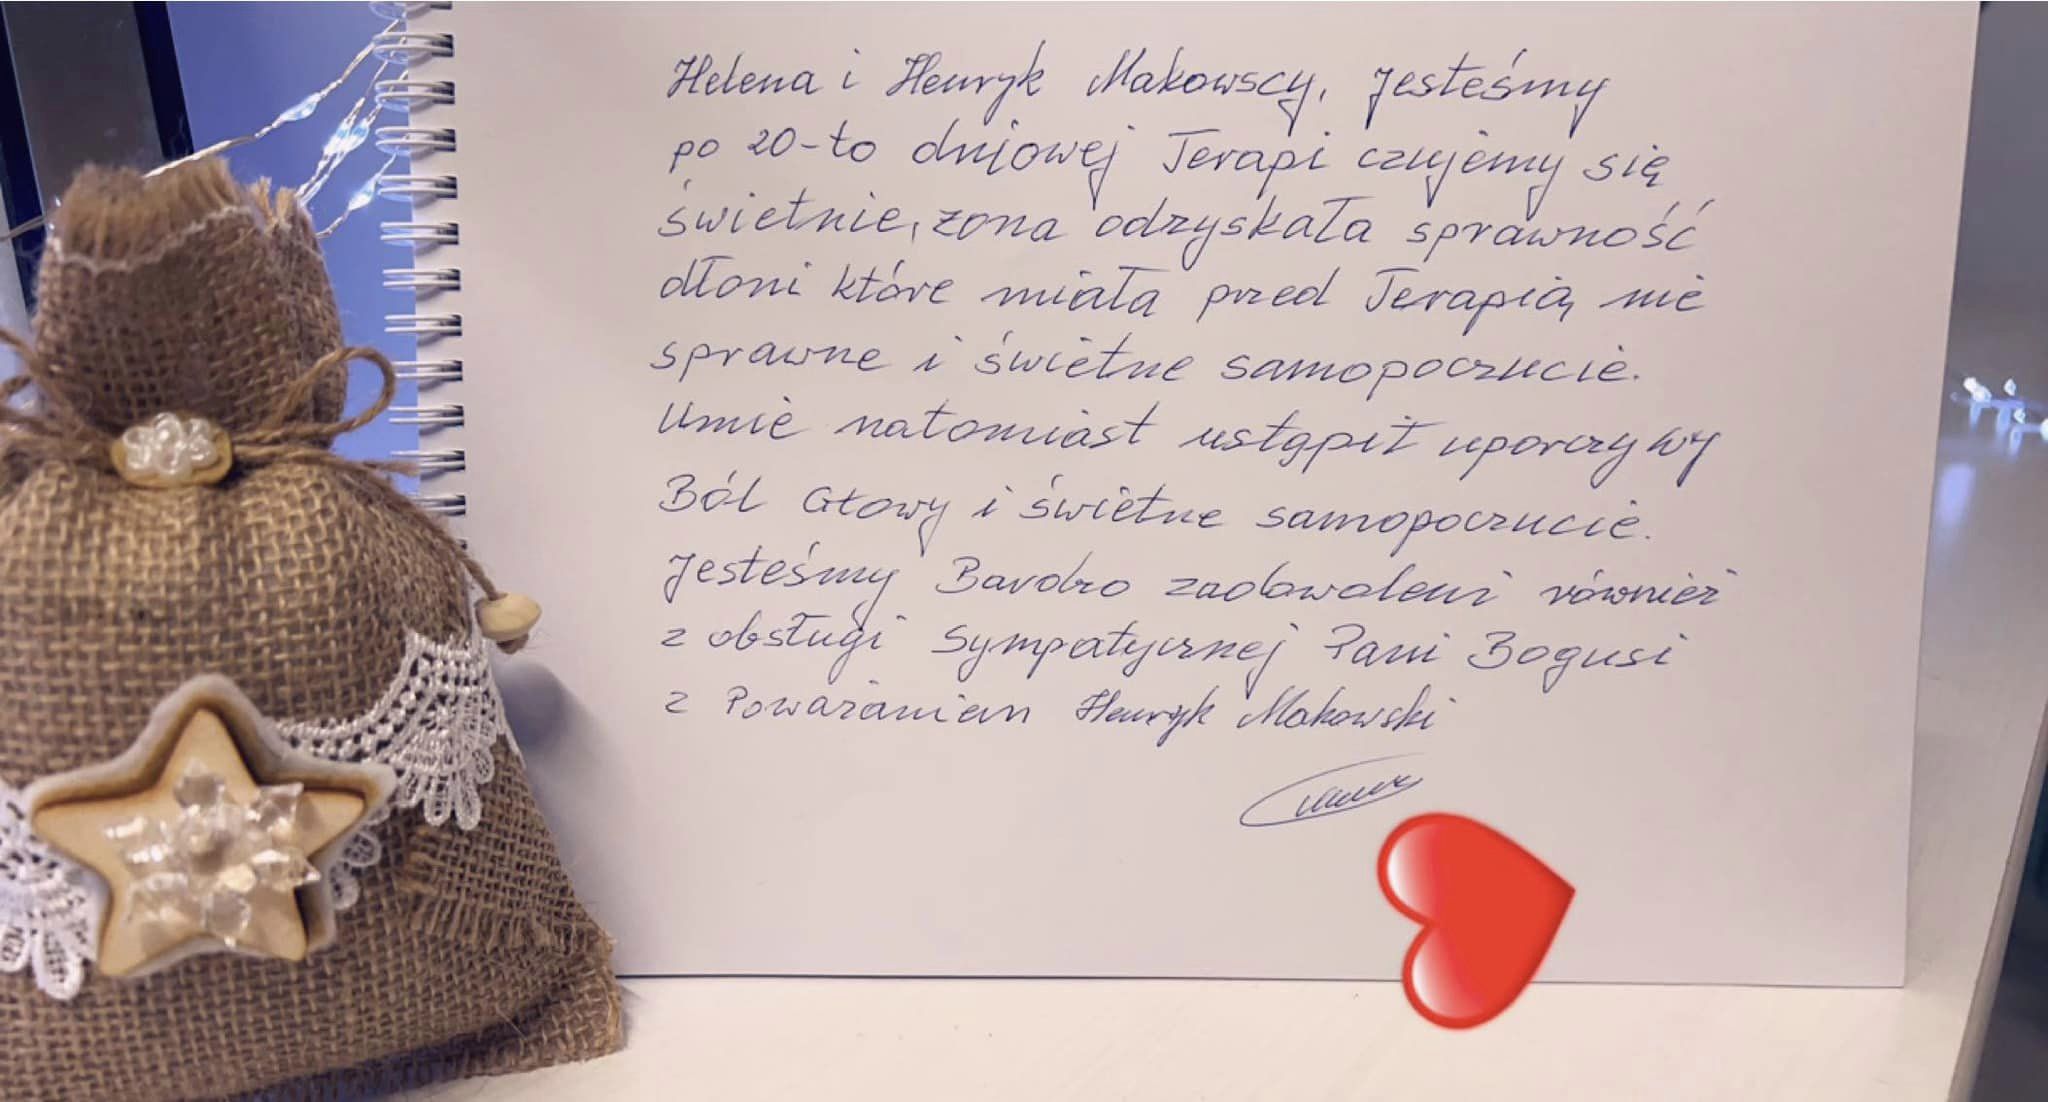 Helena i Henryk Makowscy, Jesteśmy
po 20-to dniowej Terapi czujemy się
świetnie, żona odzyskała sprawność
dłoni które miała przed Terapią nie
sprawne i świetne samopoczucie.
Umie natomiast ustąpił uporczywy
Ból Głowy i świetne samopoczucie.
Jesteśmy Bardzo zadowoleni również
z obsługi Sympatycznej Pani Bogusi
z Poważaniem Henryk Makowski